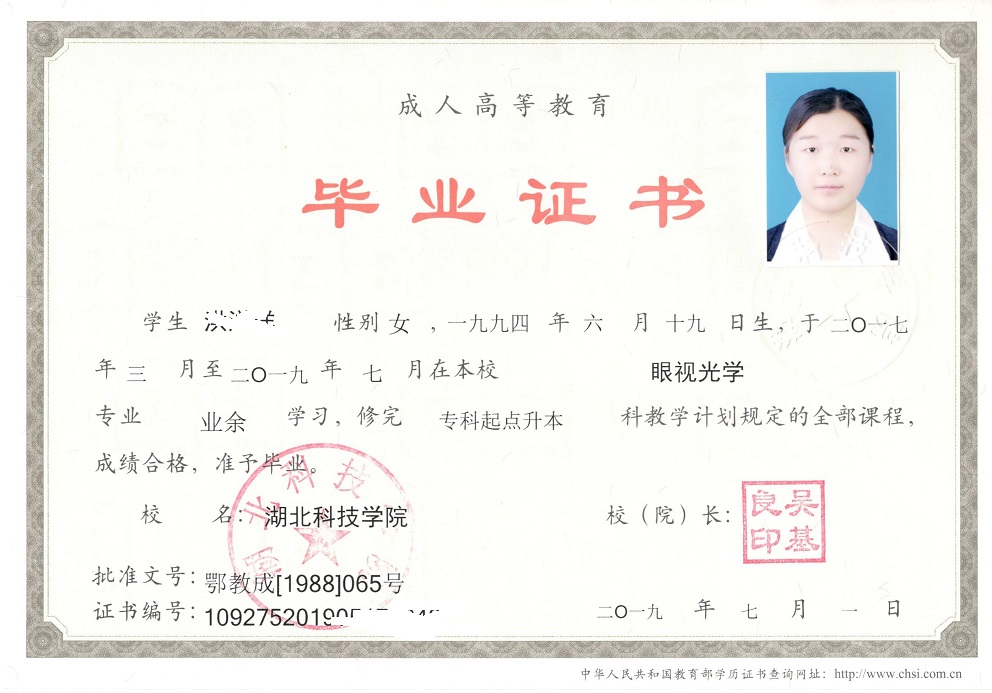 成人高等教育
毕业证书
学生 性别 女 ，一九九四 年 六 月 十九 日生，于 二〇一七
年 三 月至 二〇一九 年 七 月在本校 眼视光学
专业 业余 学习，修完 专科起点升本 科教学计划规定的全部课程，
成绩合格，准予毕业。
校 名： 湖北科技学院 校（院）长： 吴基良印
批准文号： 鄂教成[1988]065号
证书编号： 二〇一九 年 七 月 一 日
中华人民共和国教育部学历证书查询网址： http://www.chsi.com.cn